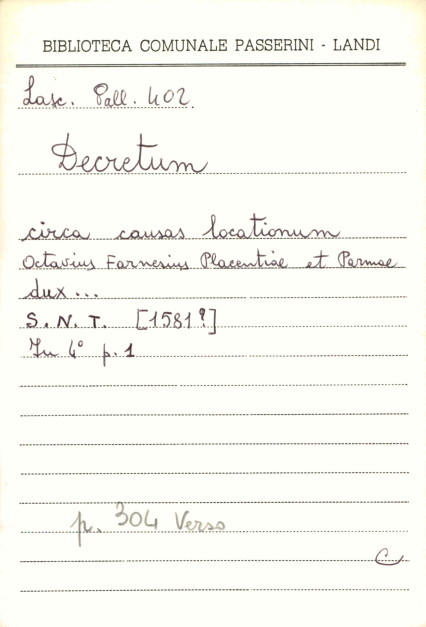 BIBLIOTECA COMUNALE PASSERINI - LANDI
Lasc. Pall. 402.
Decretum
circa causas locationum
Octavius Farnesius Placentiae et Parmae
dux...
S. N. T. [1581?]
In 4° p. 1
p. 304 Verso
C